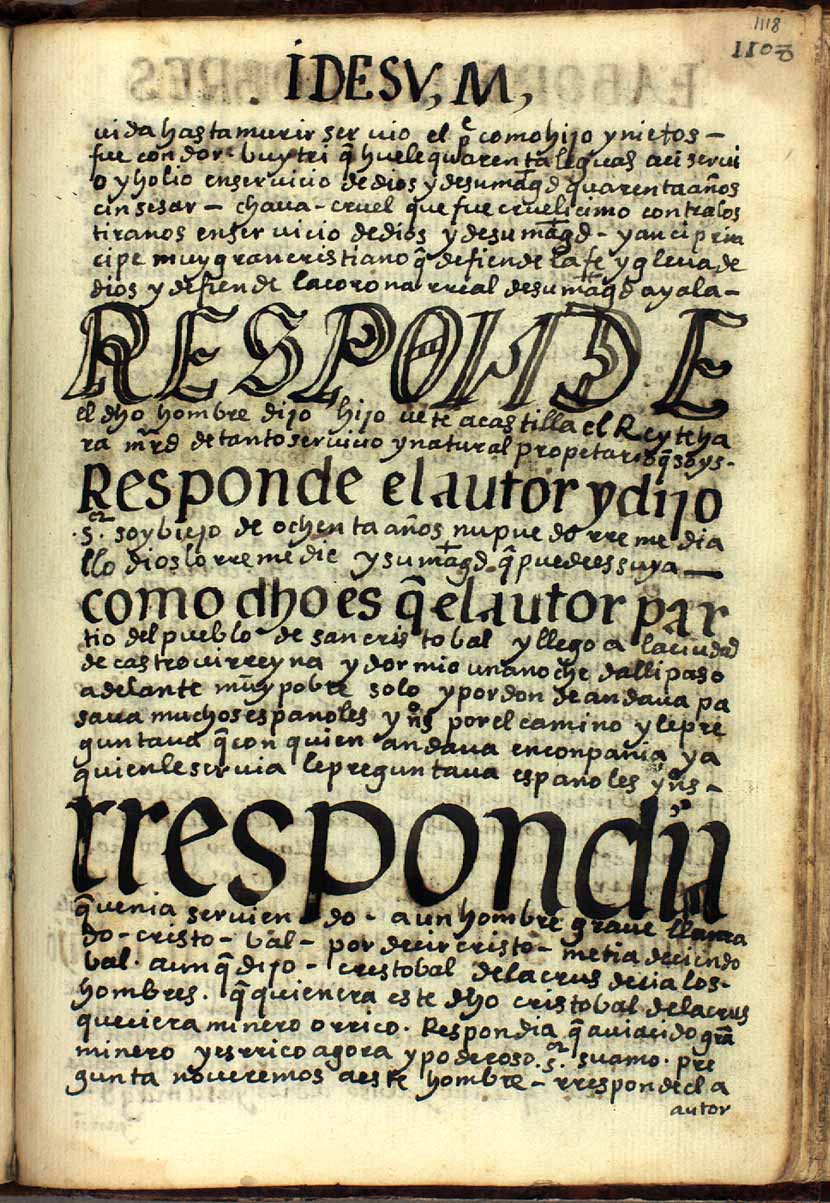 1118
1108
IDESV, M,
uida hasta murir ser uio el pe como hijo y nietos –
fue condor · buytri q̃ huele quarenta leguas aci serui
o y holio enseruicio dedios y desu mag̃d quarenta años
cin sesar – chaua – cruel que fue cruelicimo contralos
tiranos enseruicio dedios y desu mag̃d – y auci prin
cipe muy gran cristiano q̃ defiende la fe y gleciade
dios y defiende la corona rreal desu mag̃d ayala –
RESPONDE
el dho hombre dijo hijo uete a castilla el Rey teha
ra mr̃d de tanto seruicio y natural propetario q̃ soys –
Responde el autor y dijo
sor soy biejo de ochenta años nu puedo rremedia
llo dios lo rremedie y su mag̃d q̃ puede es suya –
como dho es q̃ el autor par
tio del pueblo de san cristobal y llego a la ciudad
de castrouirreyna y dormio una noche dalli paso
adelante muy pobre solo y por donde andaua pa
saua muchos españoles y yn̊s por el camino y le pre
guntaua q̃ con quien andaua enconpañia y a
quien le seruia le preguntaua españoles yn̊s –
rrespondia
q̃ uenia seruiendo · a un hombre graue llama
do – cristo – bal – por decir cristo – metia deciendo
bal · aunq̃ dijo – crestobal dela crus decia los
hombres · q̃ quien era este dho cristobal dela crus
que ciera minero o rrico · Respondia q̃ auia cido gran
minero y es rrico agora y poderoso · sor su amo · pre
gunta no ueremos a este hombre – rresponde el a
autor